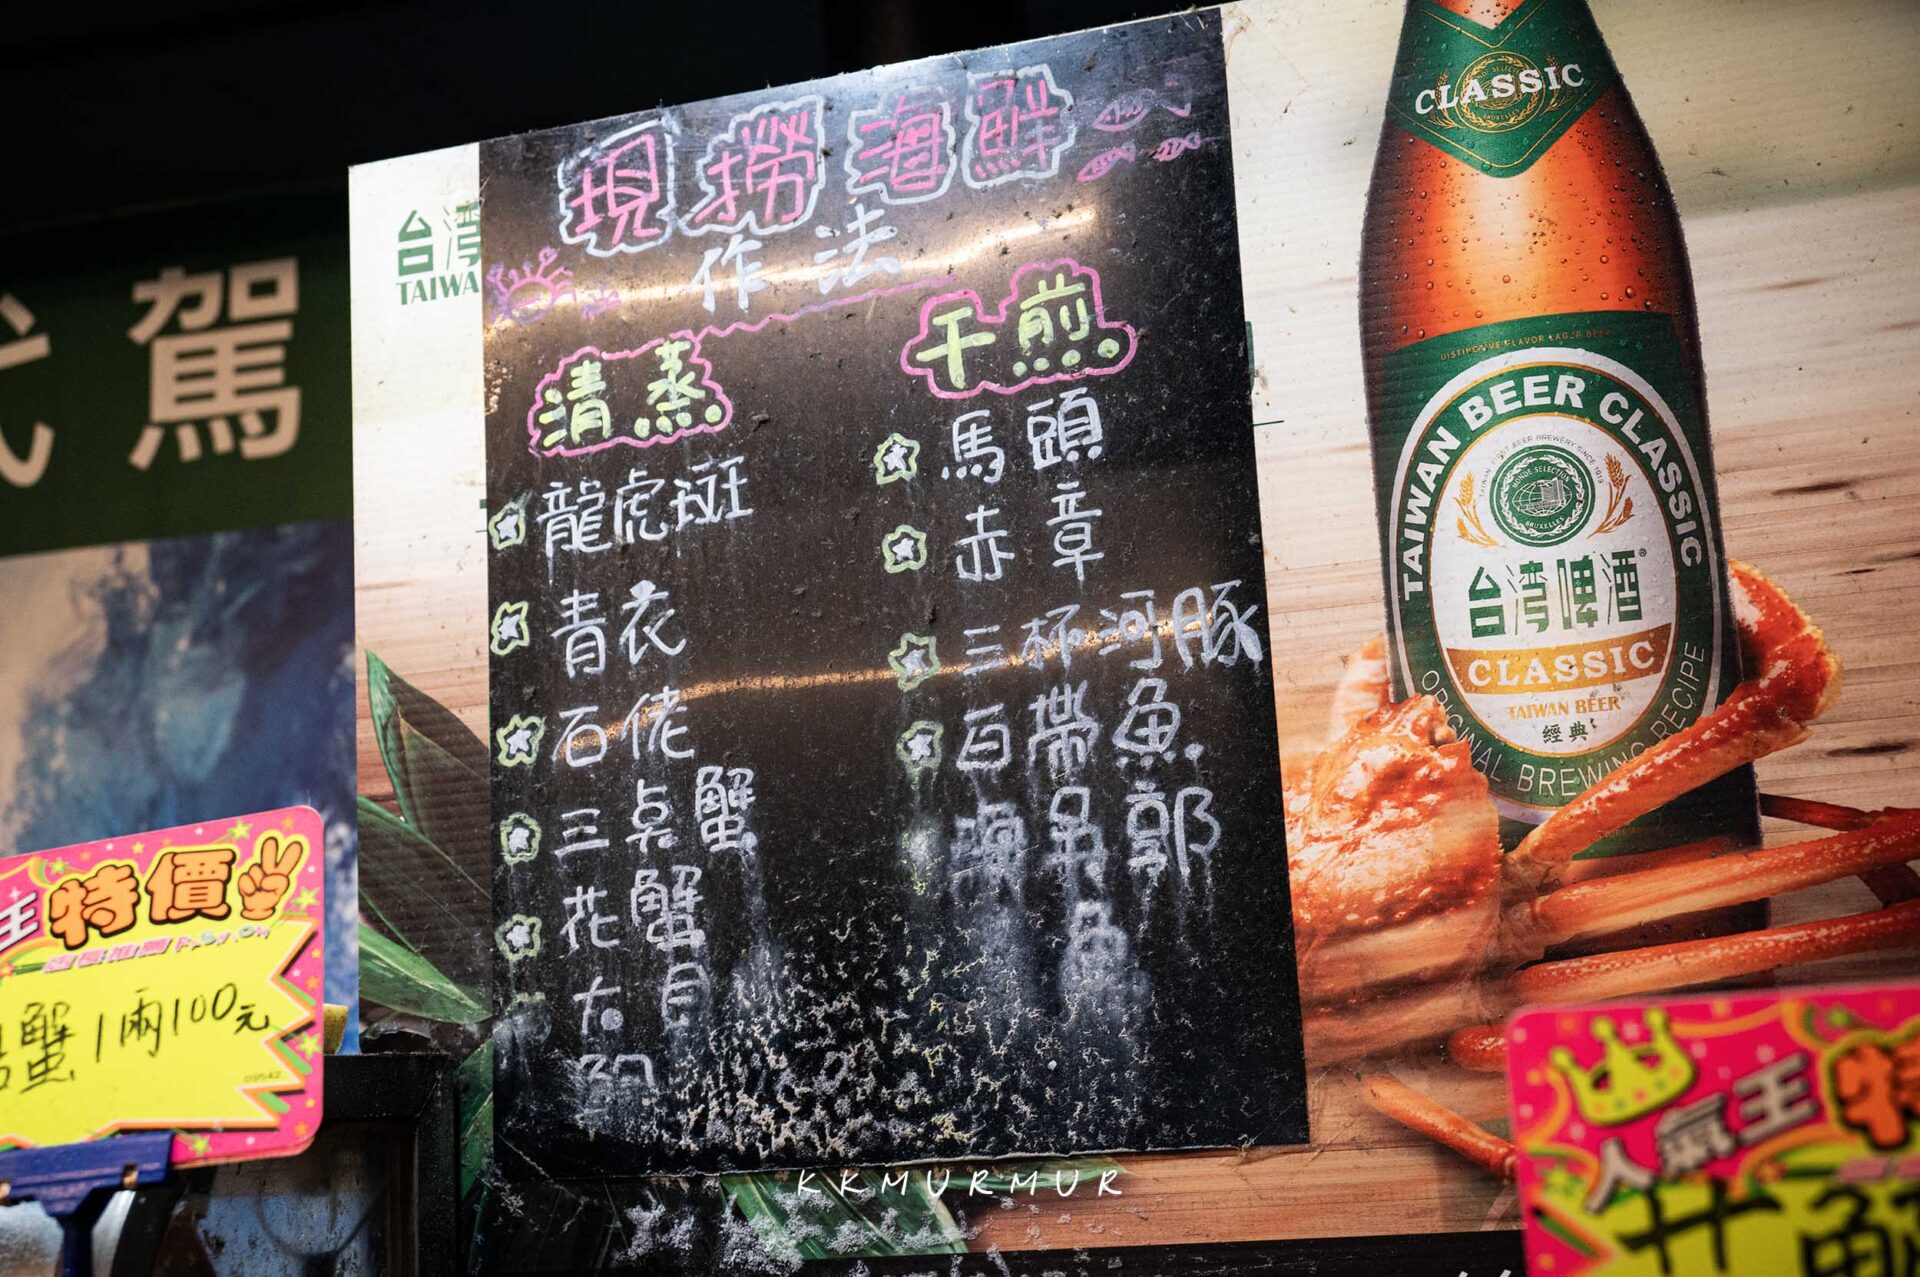 現撈海鮮
作法
清蒸
龍虎斑
青衣
石佬
三点蟹
花蟹
干煎
馬頭
赤章
三杯河豚
白帶魚
郭
魚
台灣
TAIWA
駕
特價
蟹1兩100元
09542
CLASSIC
DISTINCTIVE FLAVOR LAGER BEER
TAIWAN BEER CLASSIC
MONDE SELECTION
BRUXELLES
台灣啤酒
CLASSIC
TAIWAN BEER
經典
ORIGINAL BREWING RECIPE
人氣王特
KKMURMUR